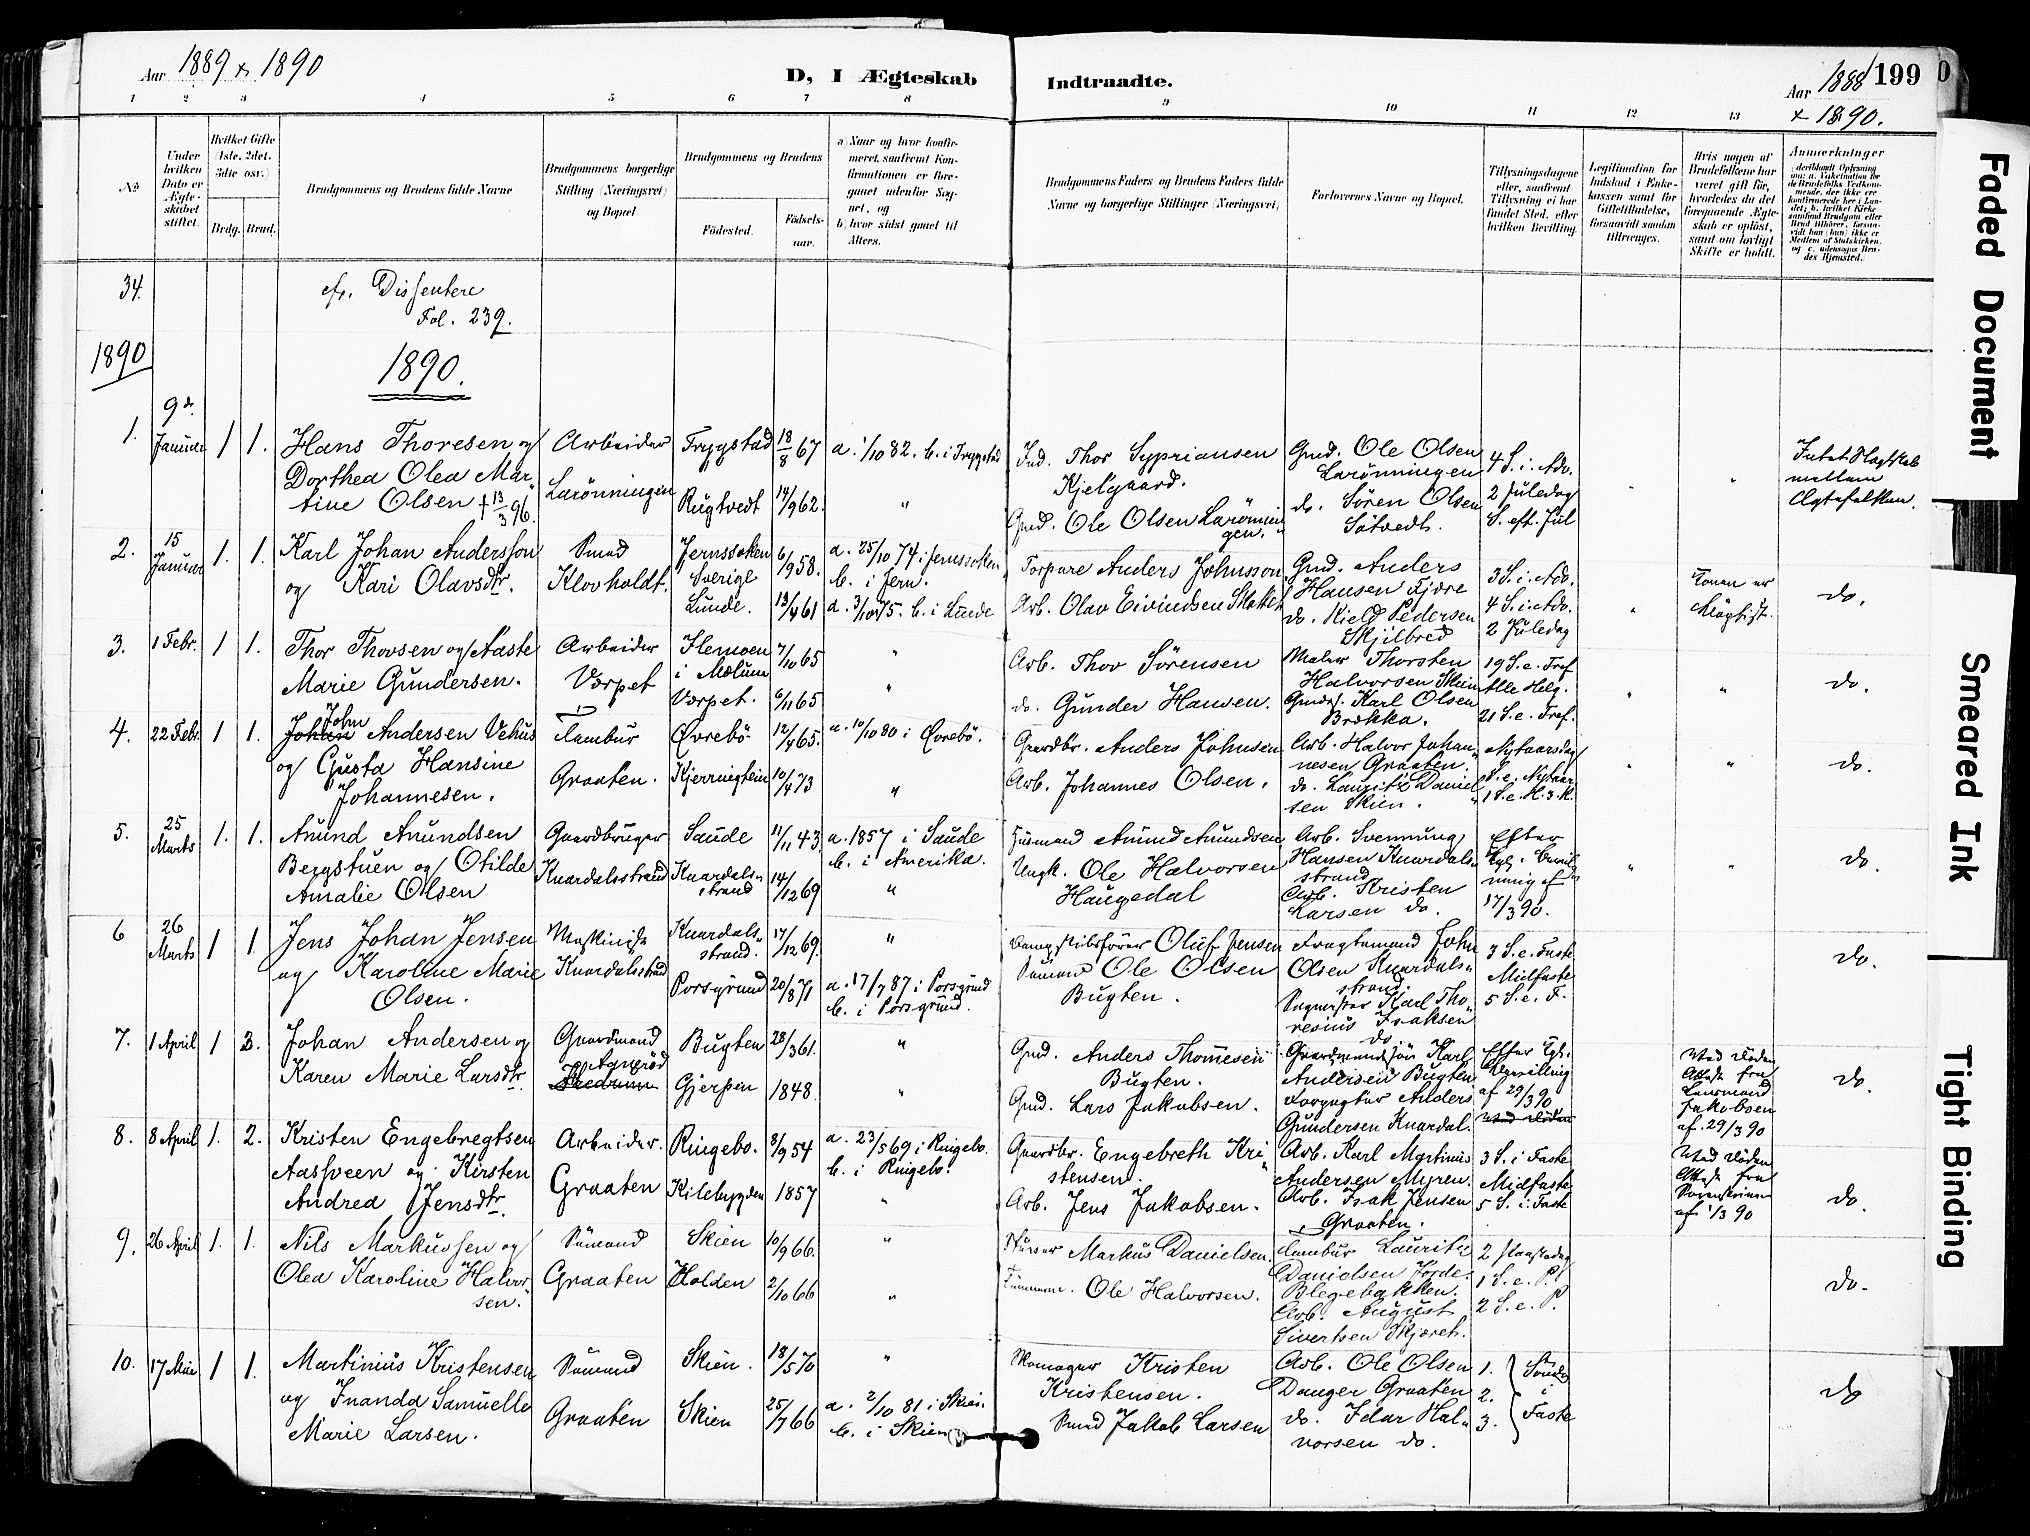 Aar 1889 & 1890
D, I Ægteskab Indtraadte.
Aar 1888 199
+ 1890.
1 2 3 4 5 6 7 8 9 10 11 12 13
No
Under hvilken Dato er Ægteskabet stiftet.
Hvilket Gifte (1ste, 2det, 3die osv.)
Brdg. Brud.
Brudgommens og Brudens fulde Navne
Brudgommens borgerlige Stilling (Næringsvei) og Bopæl.
Brudgommens og Brudens
Fødested.
Fødselsaar.
a) Naar og hvor konfirmeret, saafremt Konfirmationen er foregaaet udenfor Sognet, og
b) hvor sidst gaaet til Alters.
Brudgommens Faders og Brudens Faders fulde Navne og borgerlige Stillinger (Næringsvei)
Forlovernes Navne og Bopæl.
Tillysningsdagene eller, saafremt Tillysning ei har fundet Sted, efter hvilken Bevilling.
Legitimation for Indskud i Enkekassen samt for Giftetilladelse, forsaavidt saadan tiltrænges.
Hvis nogen af Brudefolkene har været gift før, hvorledes da det foregaaende Ægteskab er opløst, samt om lovligt Skifte er holdt.
Anmærkninger
34. cfr. Dissentere
Fol. 239.
1890
1890.
1. 9de Januar 1 1. Hans Thoresen og
Dorthea Olea Martine Olsen † 13/3 96.
Arbeider
Larönningen
Trygstad 18/8 67 a. 1/10 82. b. i Trygstad
Rugtvedt 14/9 62. "
Ind. Thor Sypriansen
Kjelgaard.
Gmd. Ole Olsen Larönningen.
Gmd. Ole Olsen
Larönningen
do. Sören Olsen
Sötvedt.
4 S. i. Adv.
2 Juledag
S. eft. Jul
Intet Slagtskab
mellem
Ægtefolkene.
2. 15 Januar 1. 1. Karl Johan Andersson
og Kari Olavsdtr.
Smed
Klovholdt.
Jernssoken
Sverige 6/9 58. a. 25/10 74 i Jernssoken
b. i Jern.
Lunde. 13/4 61 a. 3/10 75. b. i Lunde
Torpare Anders Johnsson
Arb. Olav Eivindsen
Gmd. Anders
Hansen Fjære
do. Kield Pedersen
Skjilbred
3 S. i. Adv.
4 S. i. Adv.
2 Juledag
do.
3. 1 Febr. 1 1. Thor Thovsen og Aaste
Marie Gundersen.
Arbeider
Værpet
Hemoen
i Mælum 7/10 65 "
Værpet. 6/11 65 "
Arb. Thov Sörensen
do. Gunder Hansen.
Maler Thorsten
Halvorsen Skien
Gmds. Karl Olsen
Brækka.
19 S. e. Tref.
Alle Helg.
21 S. e. Tref.
do.
4. 22 Febr. 1 1. John
Johan Andersen Vehus
og Gusta Hansine
Johannesen.
Tambur
Graaten.
Øvrebö 12/4 65. a. 10/10 80 i Øvrebö.
Kjerringtein 10/4 73 "
Gaardbr. Anders Johnsen
Arb. Johannes Olsen.
Arb. Halvor Johannesen Graaten.
do. Lauritz Danielsen Skien.
Nytaarsdag
S. e. Nytaar
1 S. e. H. 3. K.
do.
5. 25 Marts 1. 1. Anund Anundsen
Bergstuen og Otilde
Amalie Olsen
Gaardbruger
Knardalsstrand
Saude 11/11 43 a. 1857 i Saude
b. i Amerika.
Knardalsstrand 14/12 69 "
Husmand Anund Anundsen
Ungk. Ole Halvorsen
Haugedal
Arb. Svennung
Hansen Knardalsstrand
Arb. Kristen
Larsen do.
Efter
Kgl. Bevilning af
17/3 90.
do.
6 26 Marts 1 1. Jens Johan Jensen
og Karoline Marie
Olsen.
Maskinist
Knardalsstrand
Knardalsstrand. 17/12 69. "
Porsgrund 20/8 71 a. 17/7 87 i Porsgrund
b. i Porsgrund.
Dampskibsförer Oluf Jensen
Sömand Ole Olsen
Bugten.
Fragtemand John
Olsen Knardalsstrand.
Karl Thoresius Isaksen
do
3 S. e. Faste
Midfaste
5 S. e. F.
do.
7. 1 April 1 3. Johan Andersen og
Karen Marie Larsdtr.
Gaardmand
Bugten 28/3 61. "
Gjerpen 1848. "
Gmd. Anders Thomesen
Bugten.
Gmd. Lars Jakobsen.
Gaardmandssön Karl
Andersen Bugten
Forpagter Anders
Gundersen Knardal.
Efter Kgl.
Bevilling
af 29/3 90
Ved Döden
Attest fra
Lensmand
Jakobsen
af 29/3 90
do.
8. 8 April 1. 2. Kristen Engebregtsen
Aassveen og Kirsten
Andrea Jensdtr.
Arbeider.
Graaten
Ringebo. 8/9 54 a. 23/5 69 i Ringebo.
b. i Ringebo.
Kilebygden 1857 "
Gaardbr. Engebreth Kristensen.
Arb. Jens Jakobsen.
Arb. Karl Martinius
Andersen Myren.
Arb. Isak Jensen
Graaten.
3 S. i Faste
Midfaste
5 S. i Faste
Ved Döden
Attest fra
Sorenskriver
af 1/3 90
do.
9. 26 April 1. 1. Nils Markussen og
Olea Karoline Halvorsen.
Sömand
Graaten
Skien 10/9 66. "
Holden 2/10 66 "
Markus Danielsen.
Tömmerm. Ole Halvorsen.
Tambur Lauritz
Danielsen Jorde
Blegebakken.
Arb. August
Sivertsen Skjæret.
2 Paaskedag
1 S. e. P.
2 S. e. P.
do.
10. 17 Mai 1 1. Martinius Kristensen
og Inanda Samuelle
Marie Larsen.
Sömand
Graaten
Skien. 18/5 70 "
Skien 25/7 66 a. 2/10 81 i Skien.
b. i Skien
Skomager Kristen
Kristensen.
Smed Jakob Larsen
Arb. Ole Olsen
Danger Graaten
do. Idar Halvorsen do.
1.
2.
3. Söndag
i
Faste
do
Faded Document
Smeared Ink
Tight Binding